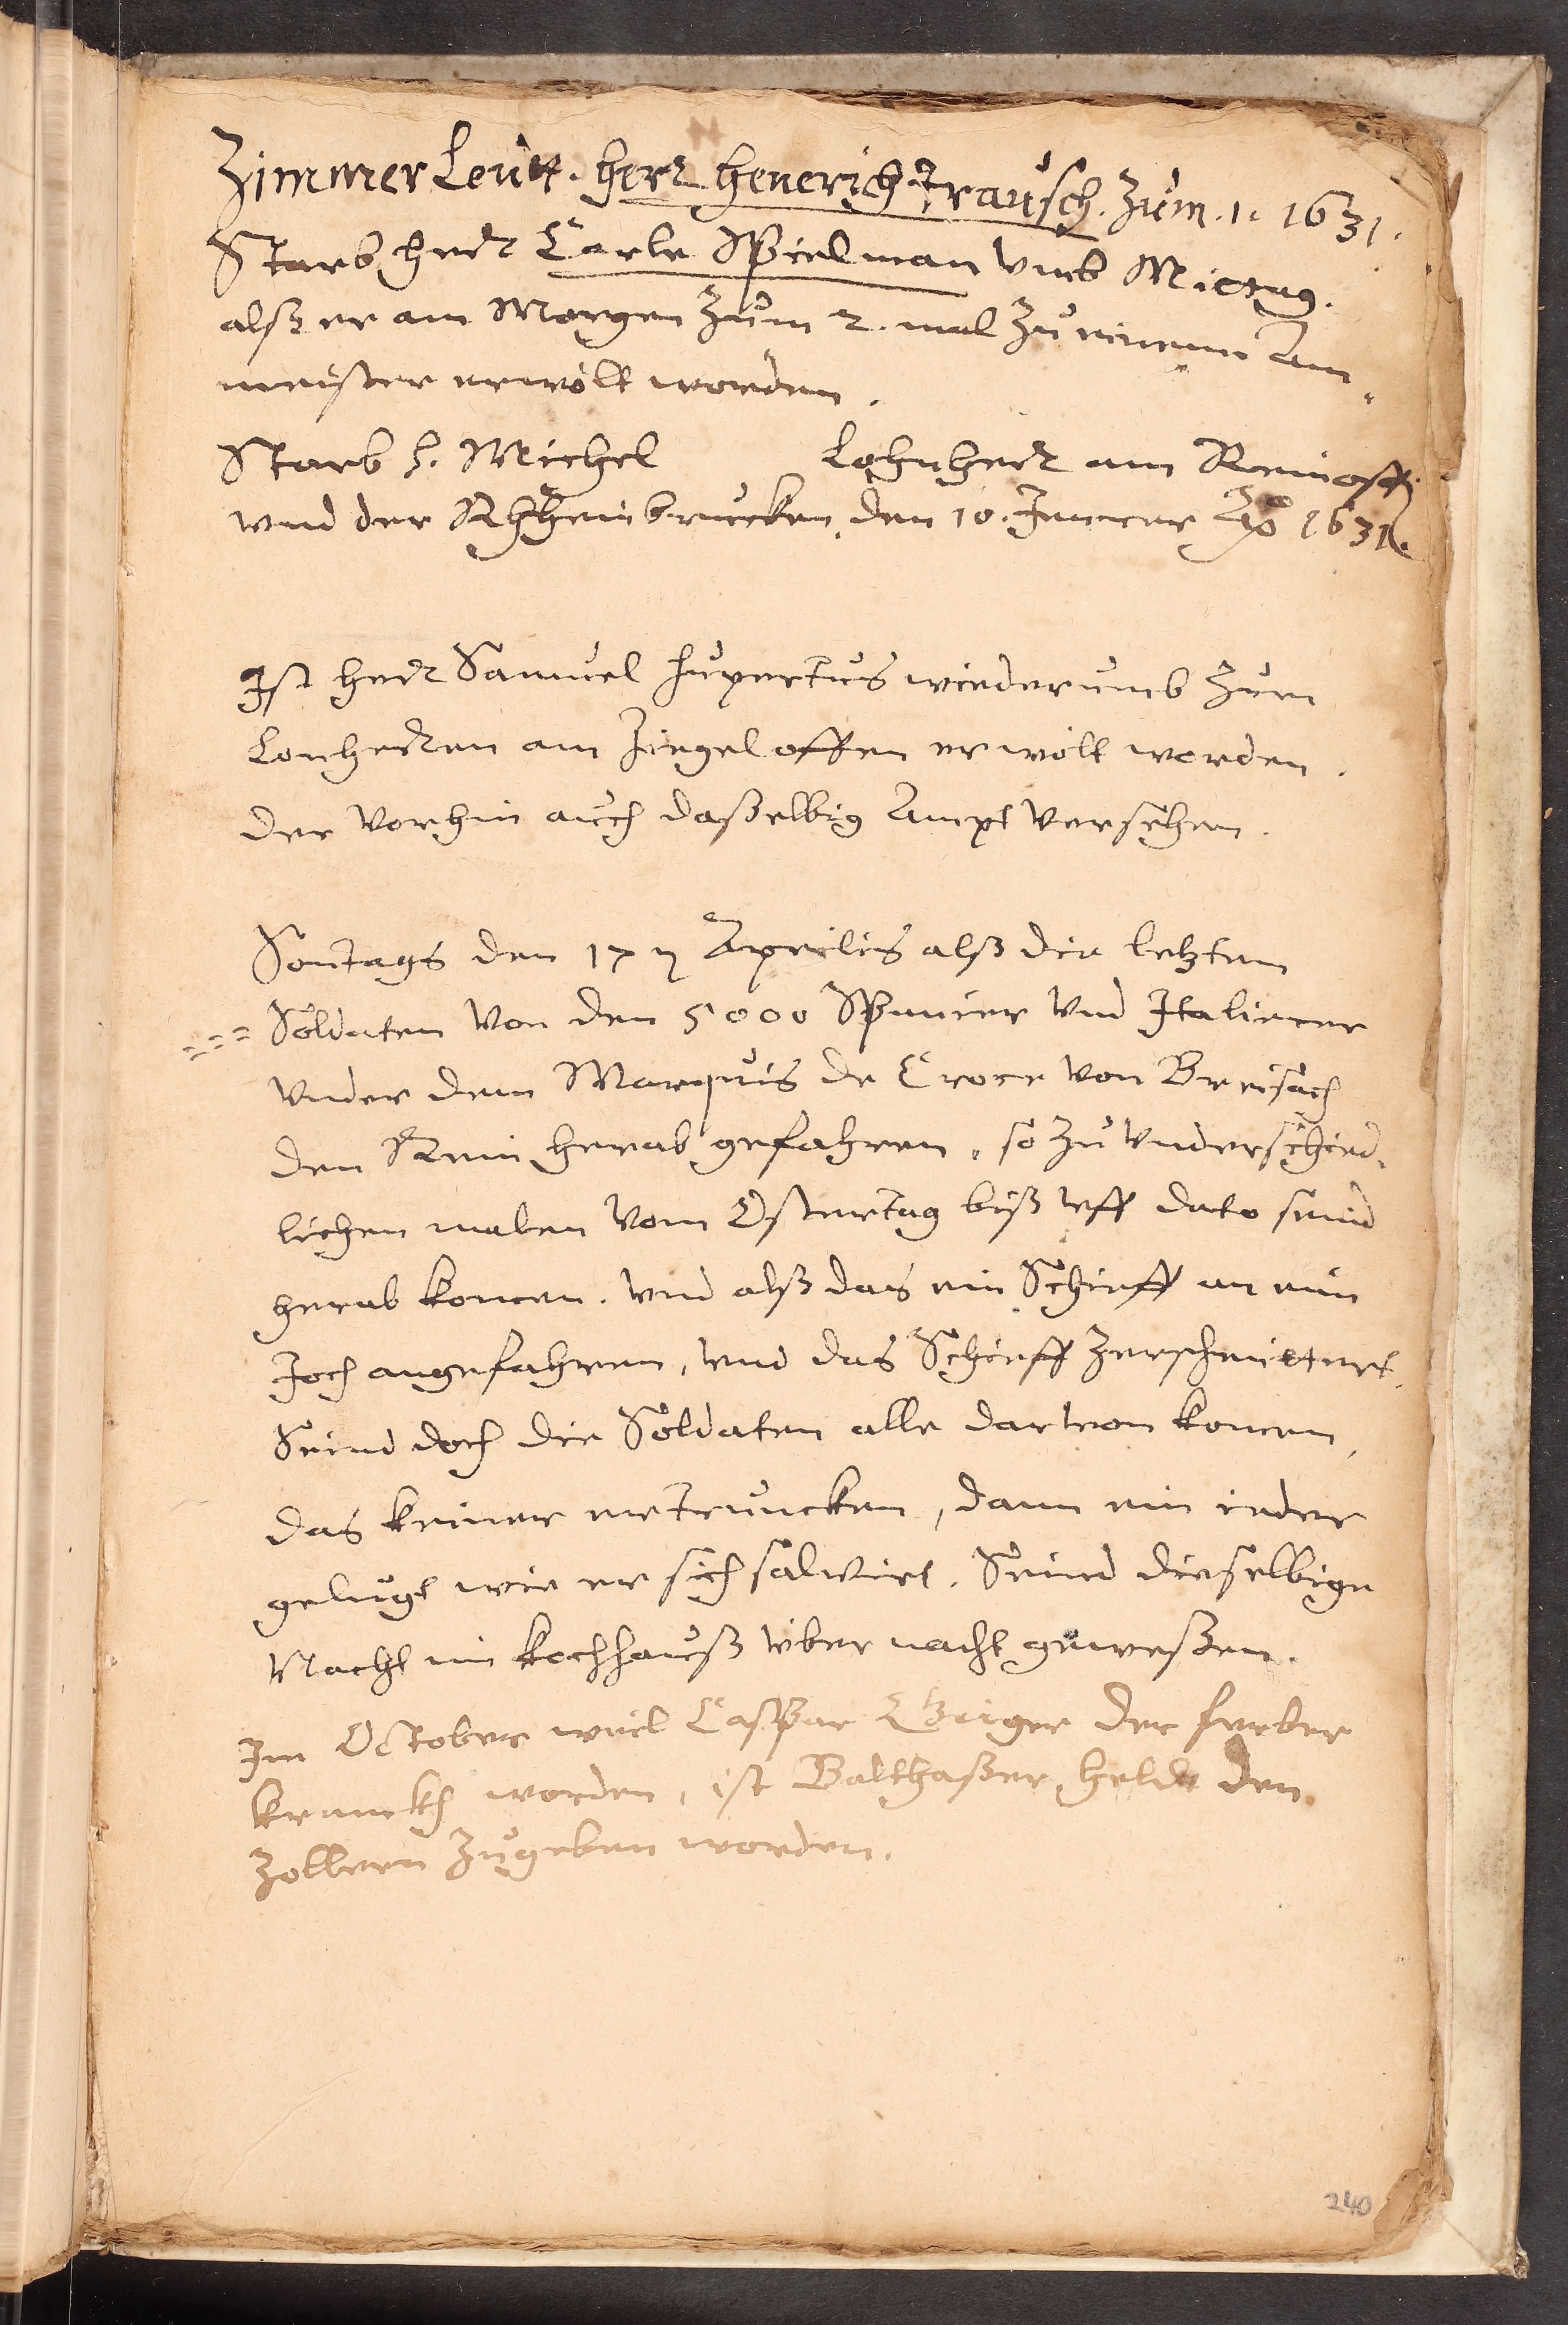 Zimmer Leutt. herr henerich Trausch. Zum. 1. 1631.
Starb herr Carle Spielman vmb Mittag.
alß er am Morgen zum 2. mal zu einem Am-
meister erwölt worden.
Starb h. Michel Lohnherr am
vnd der Rhheinbrucken. den 10. Jenner Ao 1631.
Ist herr Samuel hupertus wiederumb zum
Lonherren am Ziegeloffen erwölt worden.
der vorhin auch daßelbig Ampt versehen.
Sontags den 17 Aprilis alß die letzten
Soldaten von den 5000 Spanier vnd Italiener
vnder dem Marquis de Croce von Breisach
den Rein herab gefahren, so zu vnderschied-
lichen malen vom Ostertag biß vff dato seind
herab komen. vnd alß das ein Schieff an ein
Joch angefahren, vnd das Schieff zerschmettert.
Seind doch die Soldaten alle darvon komen,
das keiner ertruncken, dann ein ieder
gelugt wie er sich salvirt. Seind dieselbige
Nacht im kochhauß vber nacht geweßen.
Im October weil Caspar der ferber
kranckh worden, ist Balthaßer held den
Zollern zugeben worden.
240